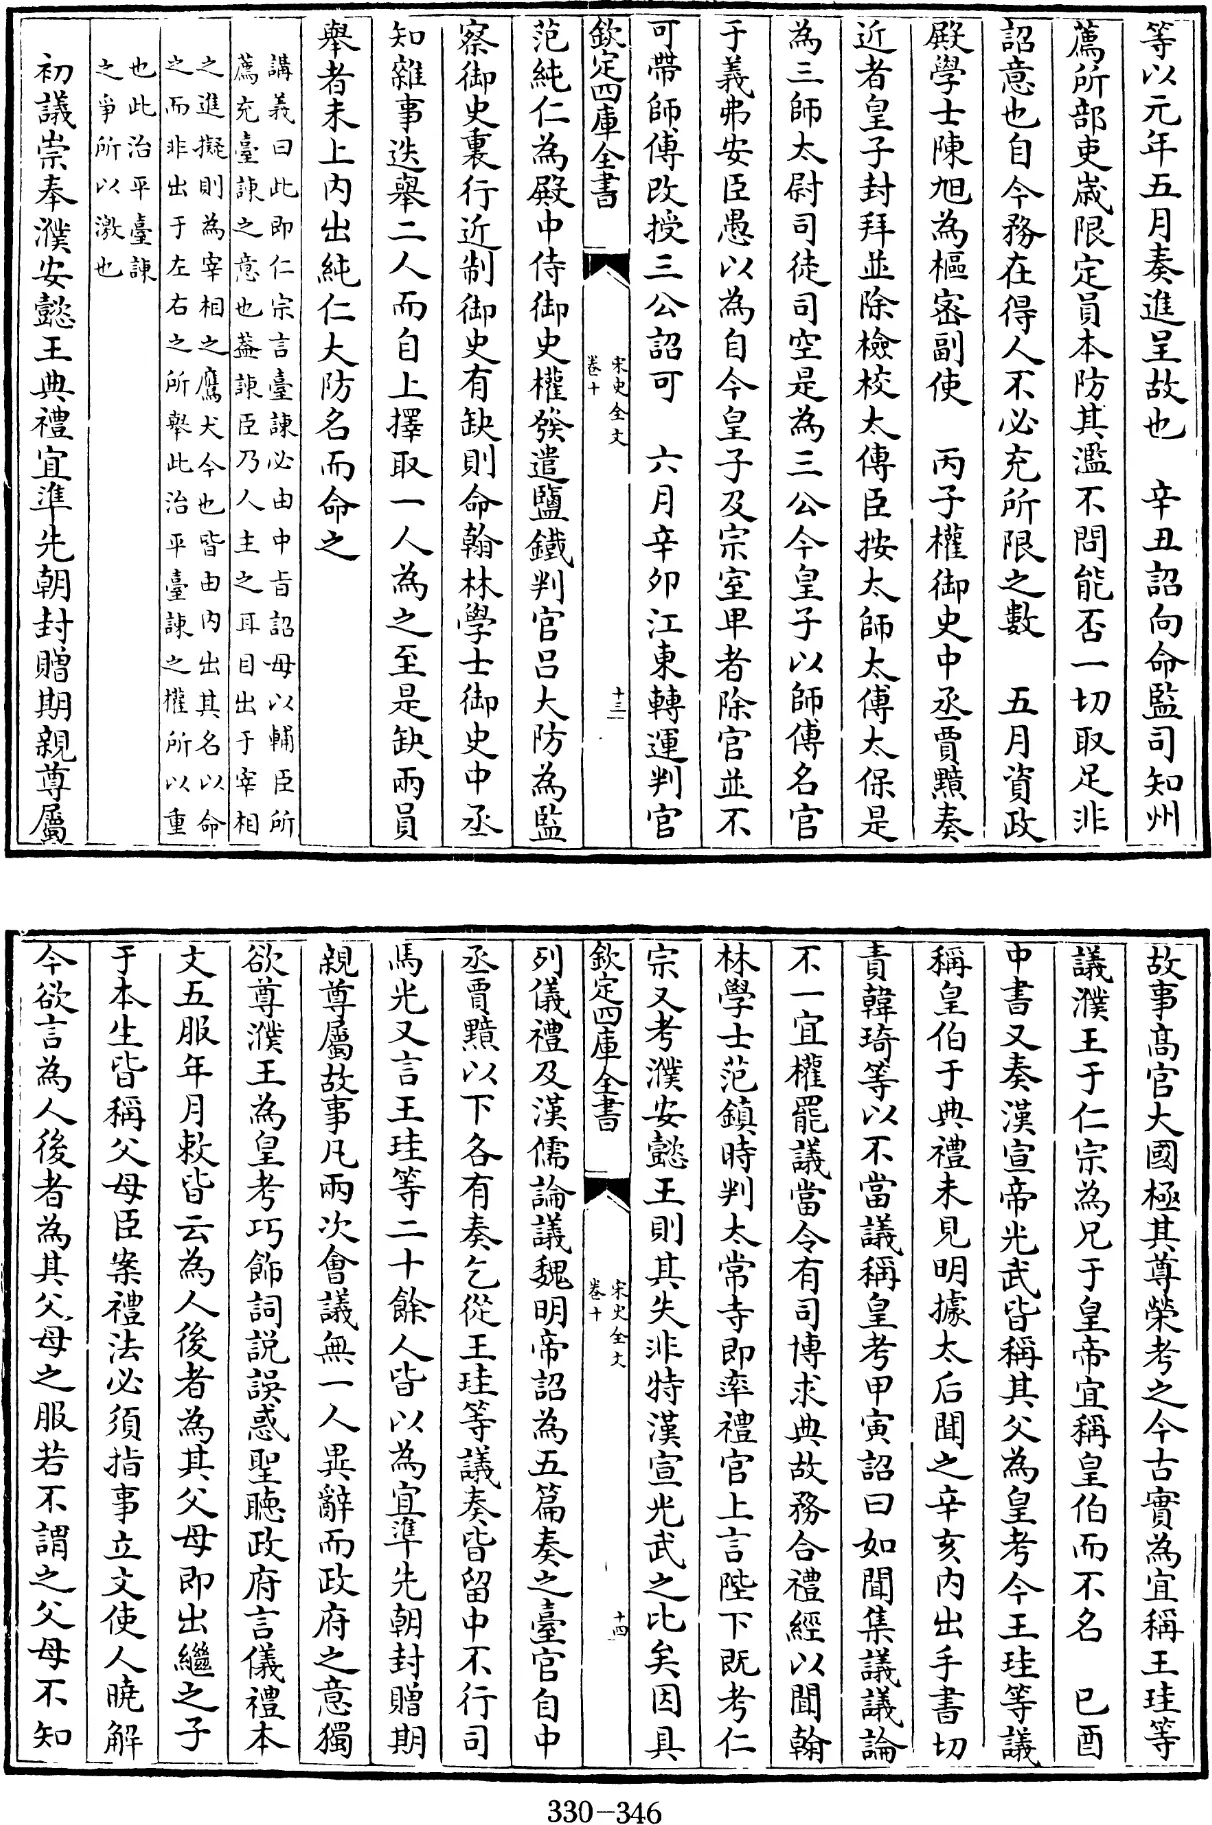 等以元年五月奏進呈故也　辛丑詔向命監司知州
薦所部吏歲限定員本防其濫不問能否一切取足非
詔意也自今務在得人不必充所限之數　五月資政
殿學士陳旭為樞密副使　丙子權御史中丞賈黯奏
近者皇子封拜並除檢校太傅臣按太師太傅太保是
為三師太尉司徒司空是為三公今皇子以師傅名官
于義弗安臣愚以為自今皇子及宗室卑者除官並不
可帶師傅改授三公詔可　六月辛卯江東轉運判官
欽定四庫全書
宋史全文
卷十
十三
范純仁為殿中侍御史權發遣鹽鐵判官呂大防為監
察御史裏行近制御史有缺則命翰林學士御史中丞
知雜事迭舉二人而自上擇取一人為之至是缺兩員
舉者未上内出純仁大防名而命之
講義曰此即仁宗言臺諫必由中旨詔毋以輔臣所
薦充臺諫之意也蓋諫臣乃人主之耳目出于宰相
之進擬則為宰相之鷹犬今也皆由内出其名以命
之而非出于左右之所舉此治平臺諫之權所以重
也此治平臺諫
之爭所以激也
初議崇奉濮安懿王典禮宜準先朝封贈期親尊屬
故事高官大國極其尊榮考之今古實為宜稱王珪等
議濮王于仁宗為兄于皇帝宜稱皇伯而不名　已酉
中書又奏漢宣帝光武皆稱其父為皇考今王珪等議
稱皇伯于典禮未見明據太后聞之辛亥内出手書切
責韓琦等以不當議稱皇考甲寅詔曰如聞集議議論
不一宜權罷議當令有司博求典故務合禮經以聞翰
林學士范鎮時判太常寺即率禮官上言陛下既考仁
宗又考濮安懿王則其失非特漢宣光武之比矣因具
欽定四庫全書
宋史全文
卷十
十四
列儀禮及漢儒論議魏明帝詔為五篇奏之臺官自中
丞賈黯以下各有奏乞從王珪等議奏皆留中不行司
馬光又言王珪等二十餘人皆以為宜準先朝封贈期
親尊屬故事凡兩次會議無一人異辭而政府之意獨
欲尊濮王為皇考巧飾詞説誤惑聖聽政府言儀禮本
文五服年月敕皆云為人後者為其父母即出繼之子
于本生皆稱父母臣案禮法必須指事立文使人曉解
今欲言為人後者為其父母之服若不謂之父母不知
330-346